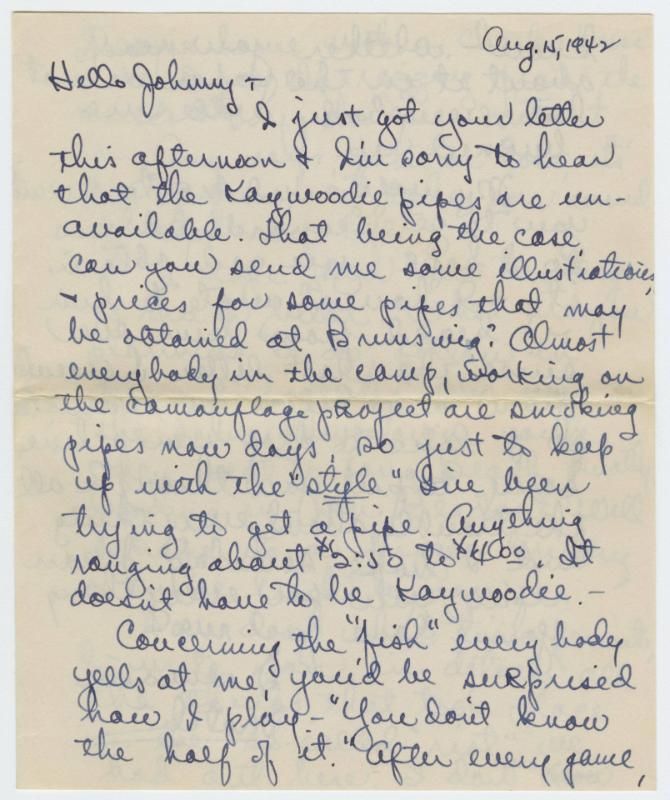 Aug. 15, 1942
Hello Johnny +
I just got your letter
this afternoon + I'm sorry to hear
that the Kaywoodie pipes are un-
available. That being the case,
can you send me some illustrations
+ prices for some pipes that may
be obtained at Brunswig? Almost
everybody in the camp, working on
the camouflage project are smoking
pipes now days, so just to keep
up with the "style" I've been
trying to get a pipe. Anything
ranging about $2.50 to $4.00. It
doesn't have to be Kaywoodie. -
Concerning the "fish" every body
yells at me, you'd be surprised
how I play - "You don't know
the half of it." After every game,